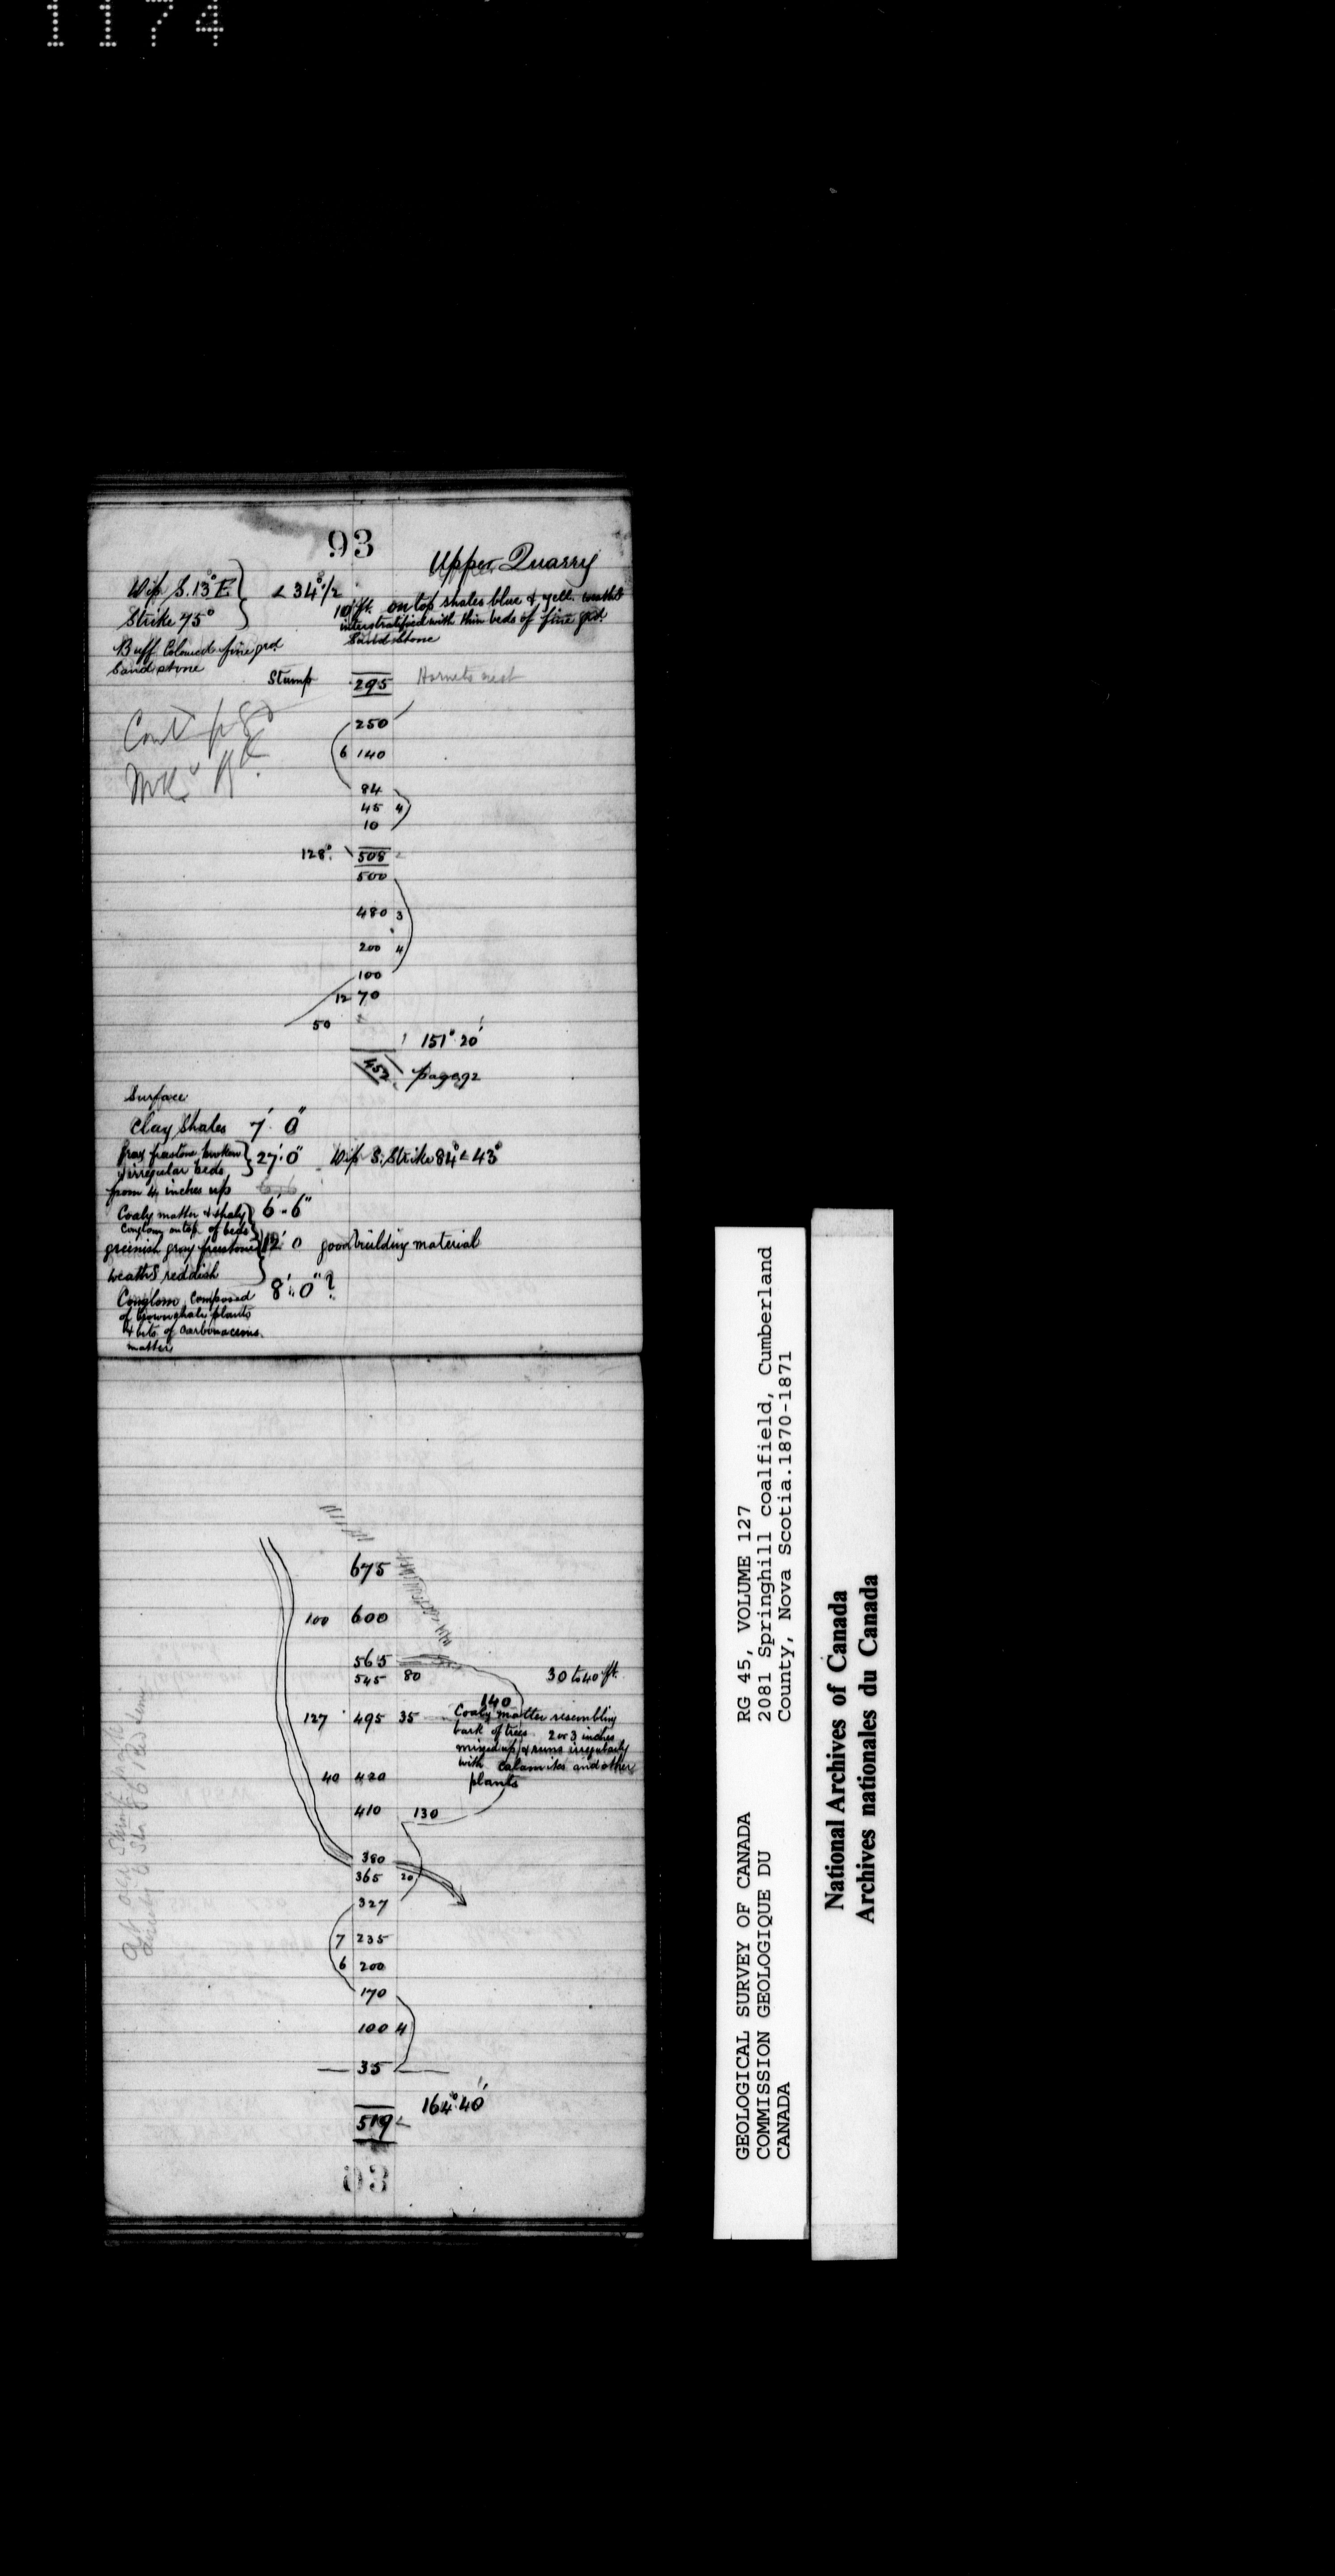 1174
93
Upper Quarry
Dip S. 13° E. < 34° 1/2
Strike 75°
10 ft. on top shales blue & yell. weath'd
interstratified with thin beds of fine grd.
Sandstone
Buff Coloured fine grd
Sandstone
Stump 295 Hornets nest
250
Cont p 80
6 140
84
45 4
10
128° 508
500
480 3
200 4
100
12 70
50
151° 20'
452 page 92
Surface
Clay Shales 7' 0"
Gray freestone broken
irregular beds 27' 0" Dip S. Strike 84° < 43°
from 4 inches up
Coaly matter & shaly 6' - 6"
Conglom on top of beds
greenish gray freestone 12' 0 good building material
weath'd reddish
Conglom composed 8' 0" ?
of brown shale plants
& bits of Carbonaceous
matter
675
100 600
565
545 80 30 to 40 ft.
140
127 495 35 Coaly matter resembling
bark of trees 2 or 3 inches
mixed up & runs irregularly
with Calamites and other
plants
40 420
410 130
380
365 20
327
7 235
6 200
170
100 4
35
164° 40'
519
93
GEOLOGICAL SURVEY OF CANADA
COMMISSION GEOLOGIQUE DU
CANADA
RG 45, VOLUME 127
2081 Springhill coalfield, Cumberland
County, Nova Scotia.1870-1871
National Archives of Canada
Archives nationales du Canada